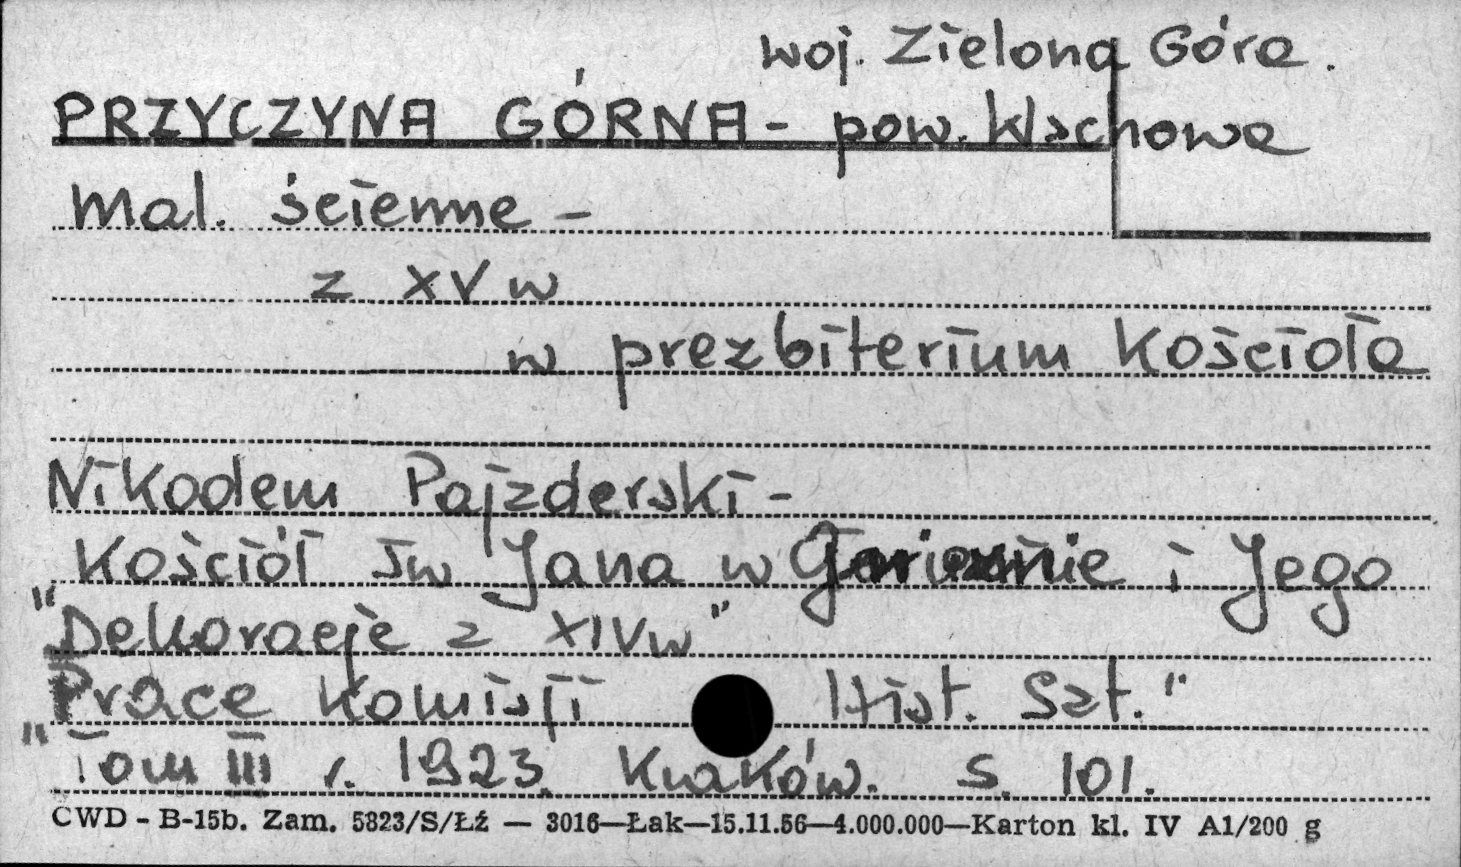 woj. Zielona Góra.
PRZYCZYNA GÓRNA - pow. Wschowa
Mal. ścienne -
z XV w
w prezbiterium Kościoła
Nikodem Pajzderski -
Kościół św Jana w Gnieźnie i Jego
"Dekoracje z XIVw"
Prace Komisji Hist. Szt."
"Tom III r. 1923. Kraków. s. 101.
CWD - B-15b. Zam. 5823/S/Łź — 3016—Łak—15.11.56—4.000.000—Karton kl. IV A1/200 g